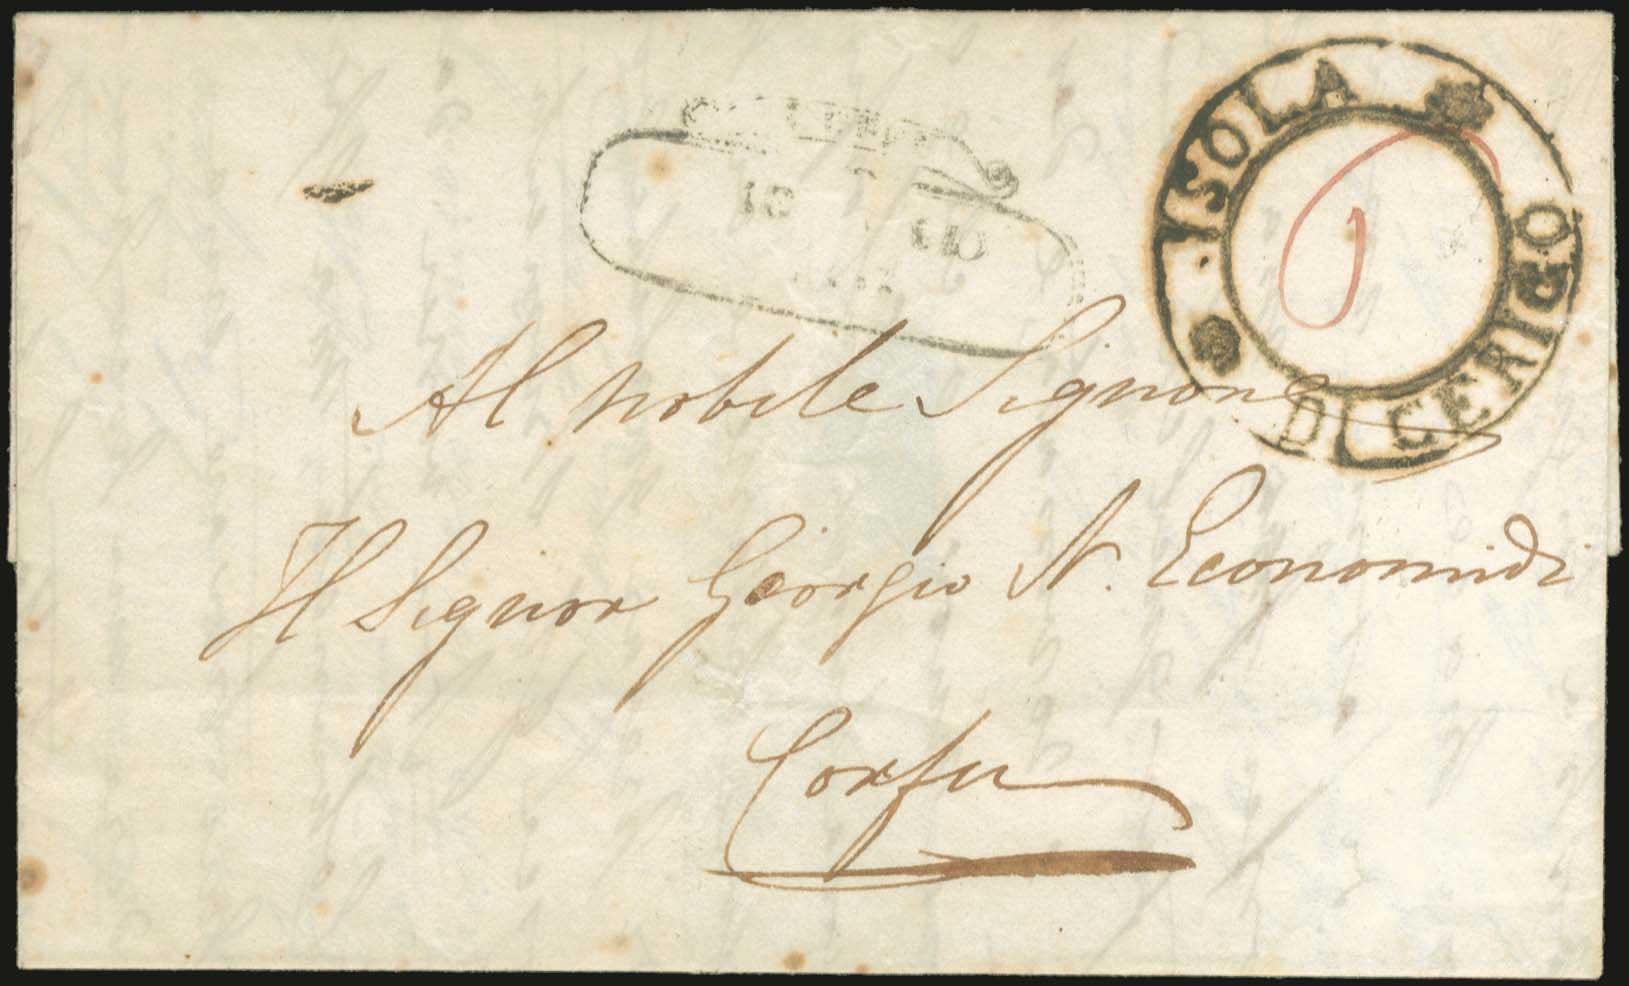 ISOLA DI CERIGO
Al nobile Signore
Il Signor Giorgio N. Economidi
Corfu